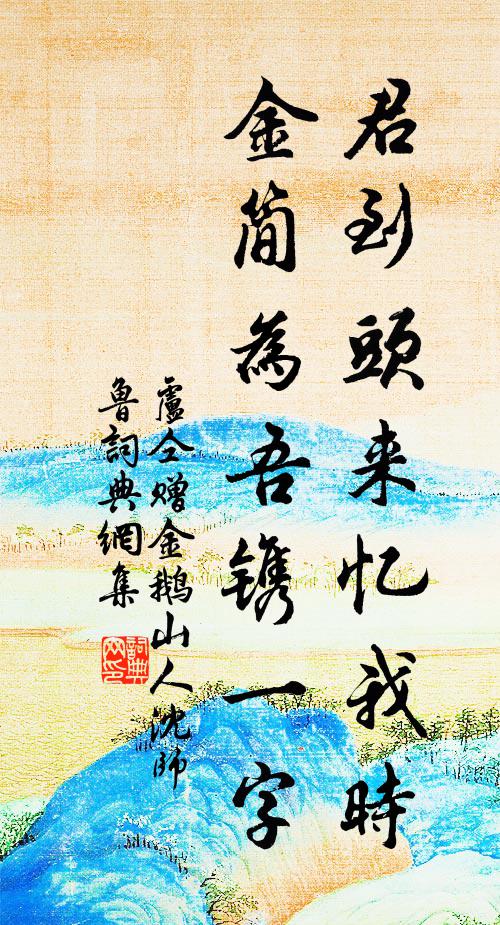 君到頭来忆我時
金简為吾镌一字
盧仝赠金鹅山人沈师
魯詞典網集
詞典